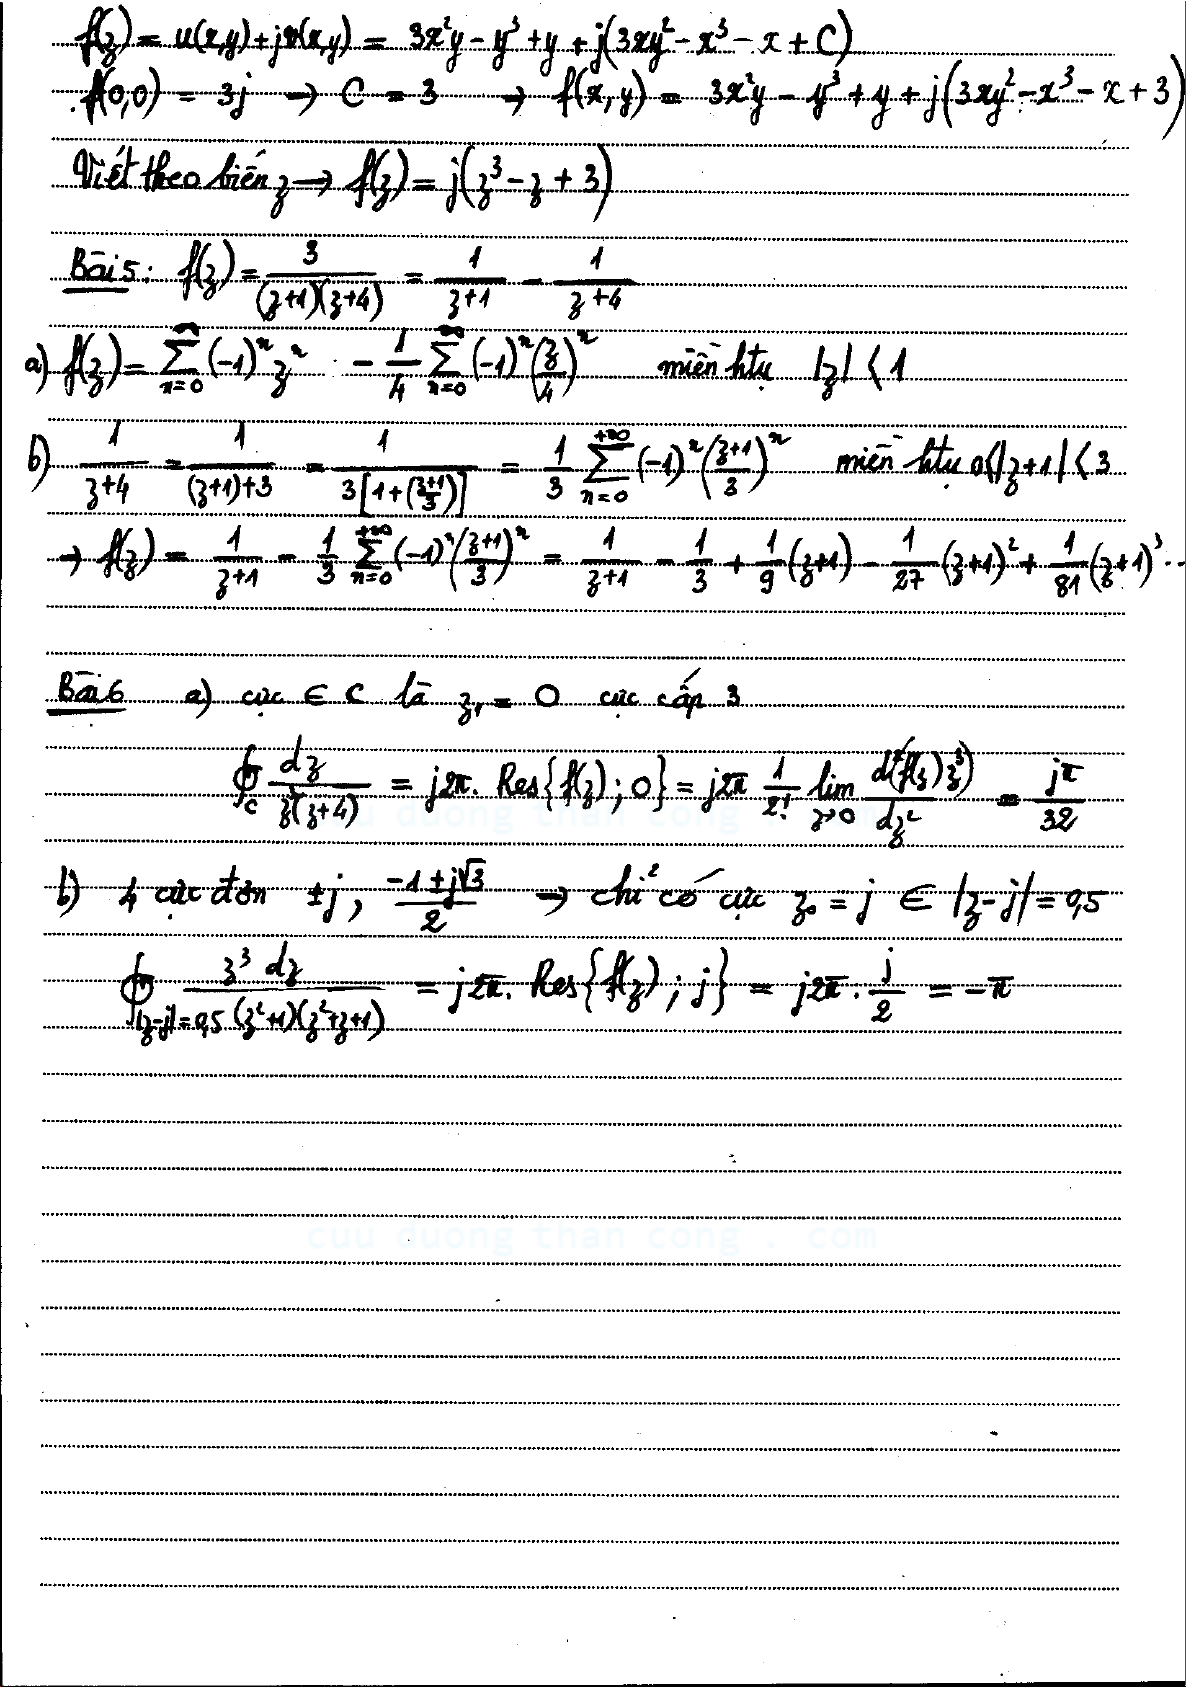 f(z) = u(x,y)+jv(x,y) = 3x²y - y³ + y + j(3xy² - x³ - x + C)
f(0,0) = 3j → C = 3 → f(x,y) = 3x²y - y³ + y + j(3xy² - x³ - x + 3)
Viết theo biến z → f(z) = j(z³ - z + 3)
Bài 5: f(z) = 3/((z+1)(z+4)) = 1/(z+1) - 1/(z+4)
a) f(z) = ∑_{n=0}^{∞} (-1)ⁿ zⁿ - 1/4 ∑_{n=0}^{∞} (-1)ⁿ (z/4)ⁿ miền htụ |z| < 1
b) 1/(z+4) = 1/((z+1)+3) = 1/(3[1+((z+1)/3)]) = 1/3 ∑_{n=0}^{+∞} (-1)ⁿ ((z+1)/3)ⁿ miền htụ 0<|z+1| < 3
→ f(z) = 1/(z+1) - 1/3 ∑_{n=0}^{+∞} (-1)ⁿ ((z+1)/3)ⁿ = 1/(z+1) - 1/3 + 1/9 (z+1) - 1/27 (z+1)² + 1/81 (z+1)³ ..
Bài 6 a) cực ∈ C là z₁ = 0 cực cấp 3
∮_C dz/(z³(z+4)) = j2π. Res{f(z); 0} = j2π 1/2! lim_{z→0} d²(f(z)z³)/dz² = jπ/32
b) 4 cực đơn ±j, (-1±j√3)/2 → chỉ có cực z₀ = j ∈ |z-j| = 0,5
∮_{|z-j|=0,5} z³ dz/((z²+1)(z²+z+1)) = j2π. Res{f(z); j} = j2π . j/2 = -π
cuu duong than cong . com
cuu duong than cong . com